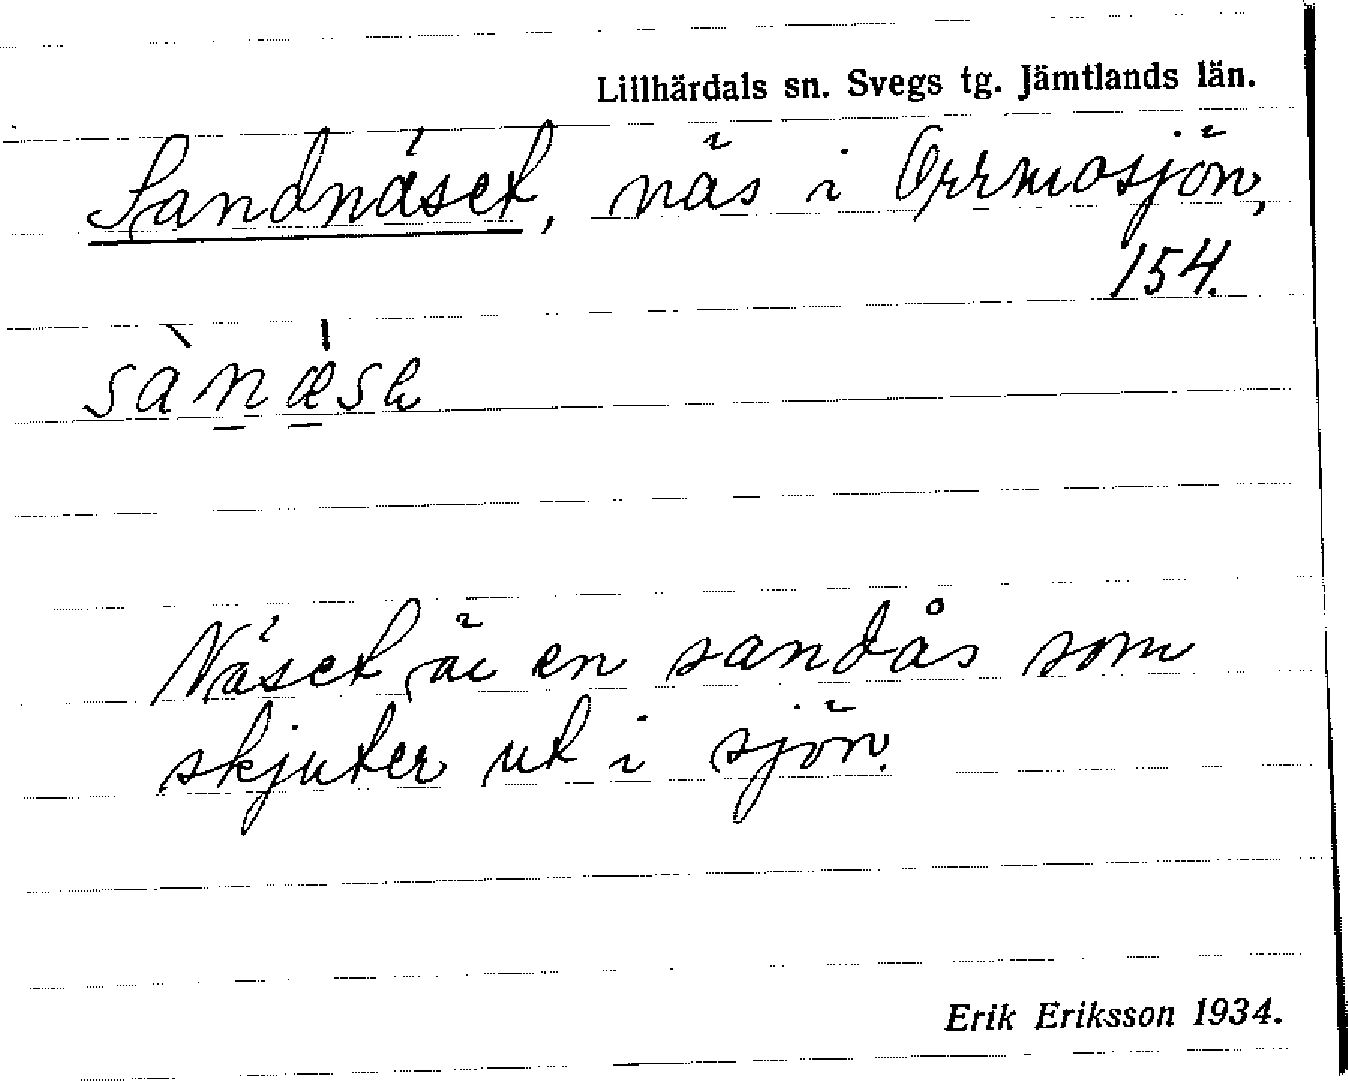 Lillhärdals sn. Svegs tg. Jämtlands län.
Sandnäset, näs i Orrmosjön,
154.
sànæ̀sə
Näset är en sandås som
skjuter ut i sjön.
Erik Eriksson 1934.